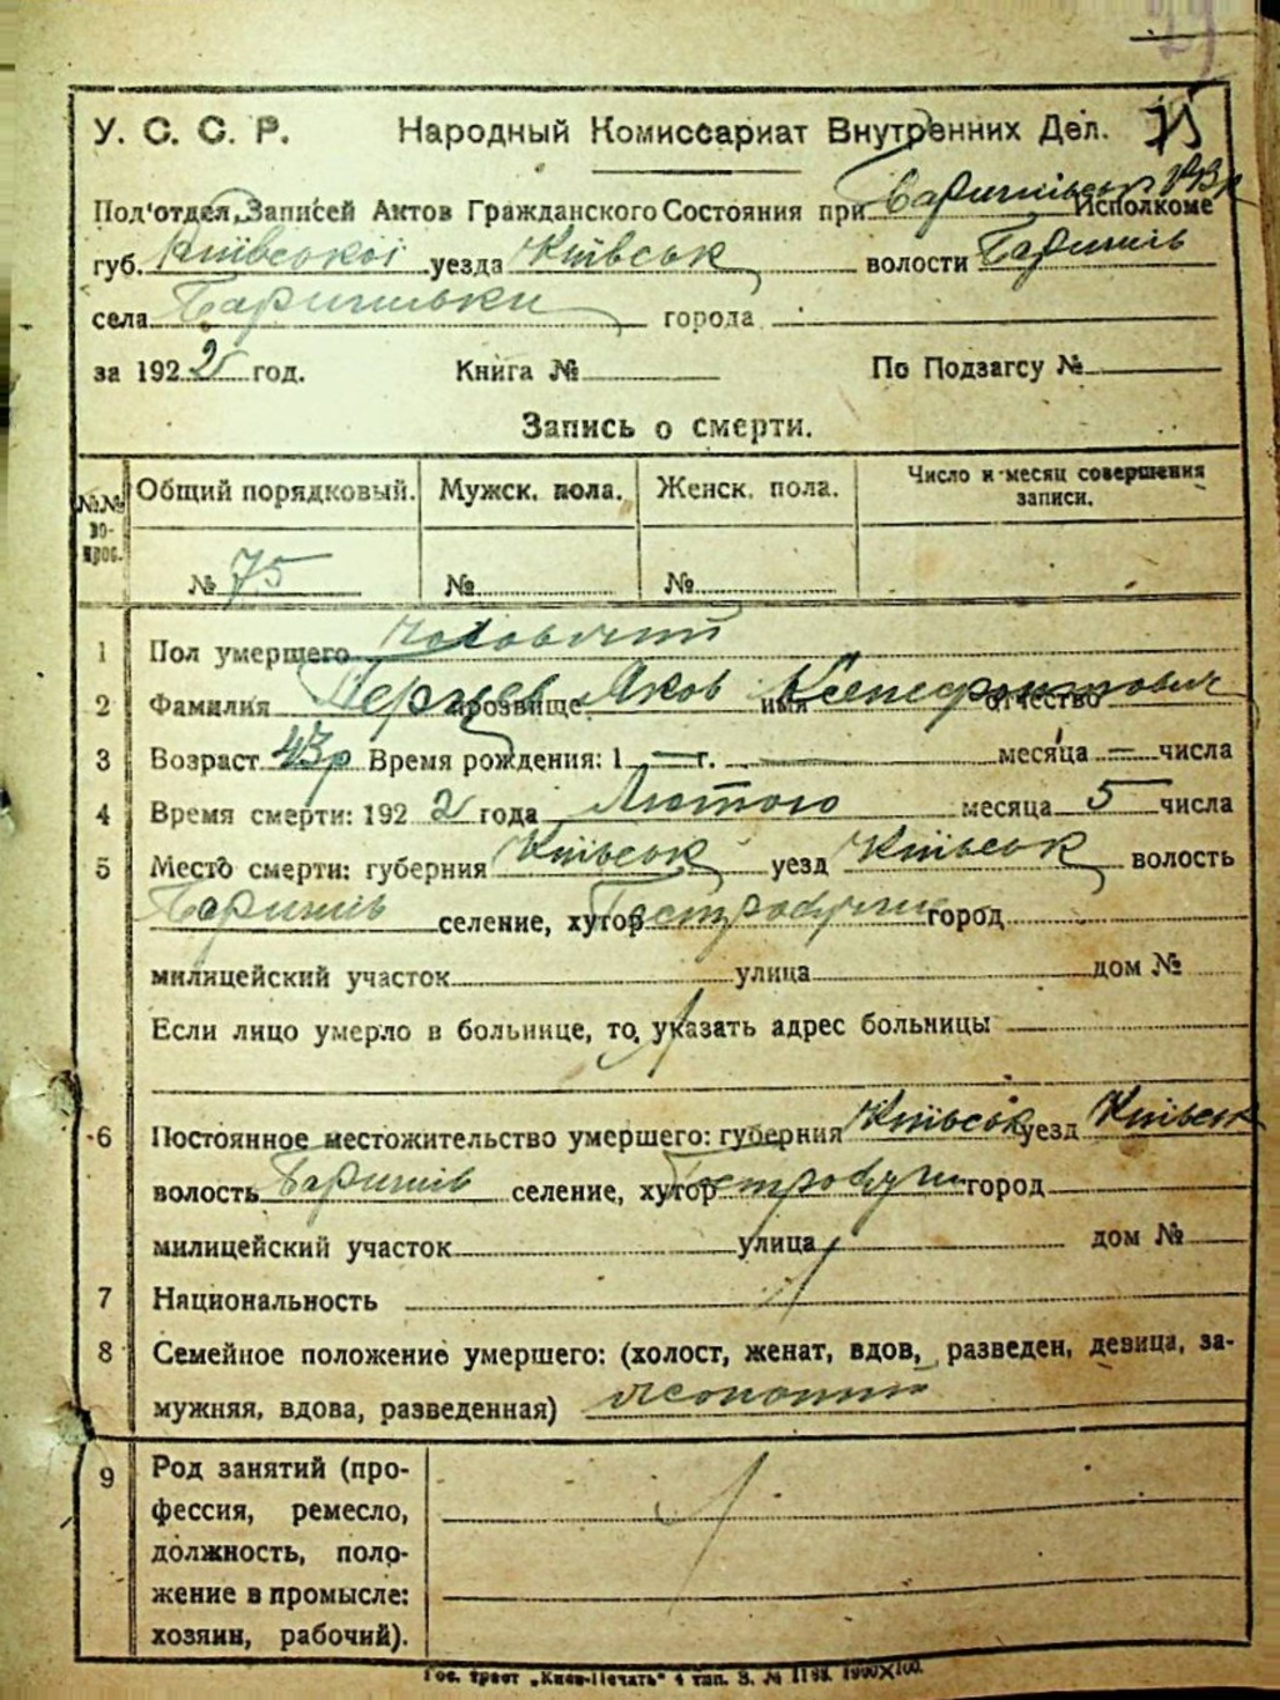 29
У. С. С. Р. Народный Комиссариат Внутренних Дел. 75
Под'отдел Записей Актов Гражданского Состояния при Баришівськ Исполкоме
губ. Київської уезда Київськ волости Баришів
села Баришівки города
за 1922 год. Книга № По Подзагсу №
Запись о смерти.
№№ во-прос. Общий порядковый. Мужск. пола. Женск. пола. Число и месяц совершения записи.
№ 75 № №
1 Пол умершего чоловічий
2 Фамилия прозвище Яков имя отчество
3 Возраст 43р Время рождения: 1 — г. — месяца — числа
4 Время смерти: 1922 года Лютого месяца 5 числа
5 Место смерти: губерния Київськ уезд Київськ волость
Баришів селение, хутор город
милицейский участок улица дом №
Если лицо умерло в больнице, то, указать адрес больницы
6 Постоянное местожительство умершего: губерния Київськ уезд Київськ
волость Баришів селение, хутор город
милицейский участок улица дом №
7 Национальность
8 Семейное положение умершего: (холост, женат, вдов, разведен, девица, за-
мужняя, вдова, разведенная) жонатий
9 Род занятий (про-
фессия, ремесло,
должность, поло-
жение в промысле:
хозяин, рабочий).
Гос. трест „Киев-Печать" 4 тип. З. №